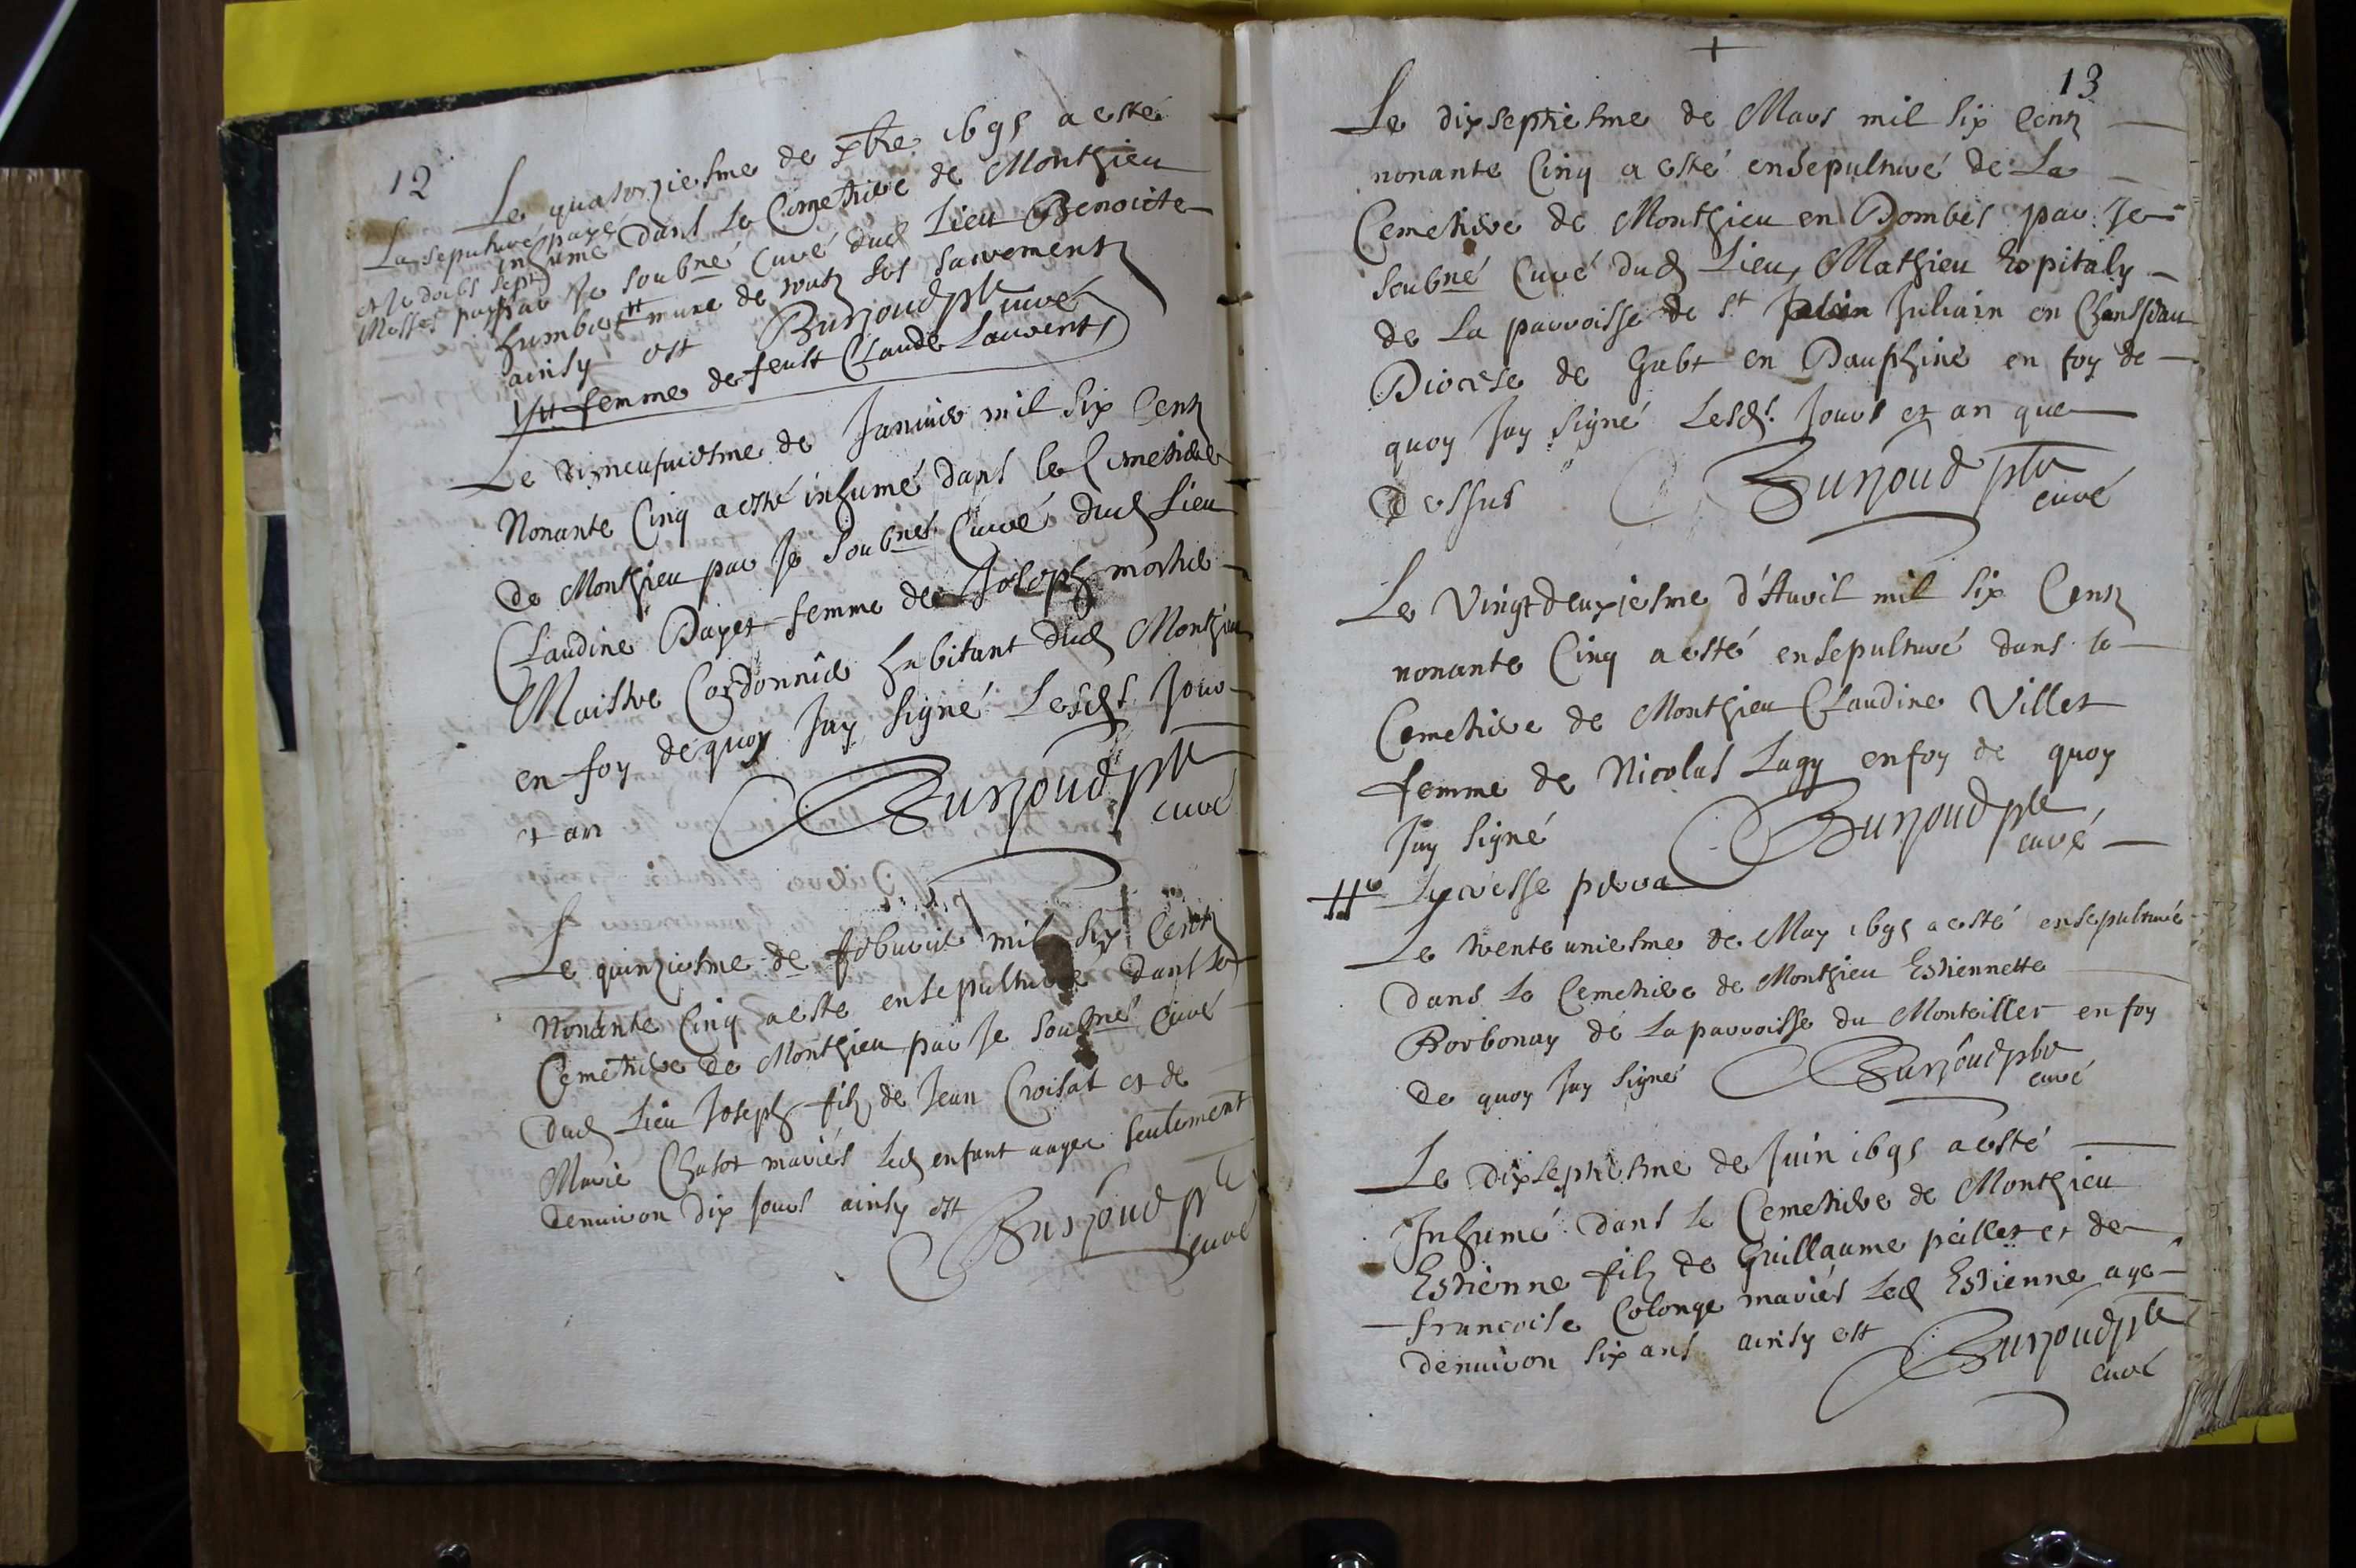 12
Le quatorziesme de xbre 1695 a esté
La sepulture payé
et je dois sept
Messes
inhumé dans le Cimetiere de Monthieu
par Je soubné Curé dud Lieu Benoite
humbert # mune de touts ses sacrements
ainsy est Burjoud ptre curé
# femme de feust Claude Laurent
Le dixneufviesme de Janvier mil six Cents
Nonante Cinq a esté inhumé dans le Cimetiere
de Monthieu par Je soubnes Curé dud Lieu
Claudine Bayet femme de Joseph mortier
Maistre Cordonnier habitant dud Monthieu
en foy de quoy Jay signé Lesds. Jour
et an Burjoud ptre
curé
Le quinziesme de febvrier mil six Cents
Nonante Cinq a este ensepulturé dans le
Cemetiere de Monthieu par Je soubné Curé
Dud Lieu Joseph filz de Jean Croisat et de
Marie Chatot mariés led enfant aagée seulement
denviron dix Jours ainsy est Burjoud ptre
curé
13
Le dixseptiesme de Mars mil six Cents
nonante Cinq a esté ensepulturé de La
Cemetiere de Monthieu en Dombes par Je
soubné Curé dud Lieu, Mathieu hopitaly
de La parroisse de St Juliain en Chansaur
Diocese de Gabt en Dauphiné en foy de
quoy Jay signé Lesds. Jours et an que
dessus Burjoud ptre
curé
Le Vingtdeuxiesme d'Avril mil six Cents
nonante Cinq a esté ensepulturé dans le
Cemetiere de Monthieu Claudine Villet
femme de Nicolas Lagy en foy de quoy
Jay signé Burjoud ptre
curé
Le trente uniesme de May 1695 a esté ensepulturée
dans Le Cemetiere de Monthieu Estiennette
Borbonay de La parroisse du Monteiller en foy
de quoy Jay signé Burjoud ptre
curé
Le dixseptiesme de Juin 1695 a esté
Inhumé dans le Cemetiere de Monthieu
Estienne filz de Guillaume peillet et de
francoise Colonge mariés Led Estienne agé
denviron six ans ainsy est Burjoud ptre
curé